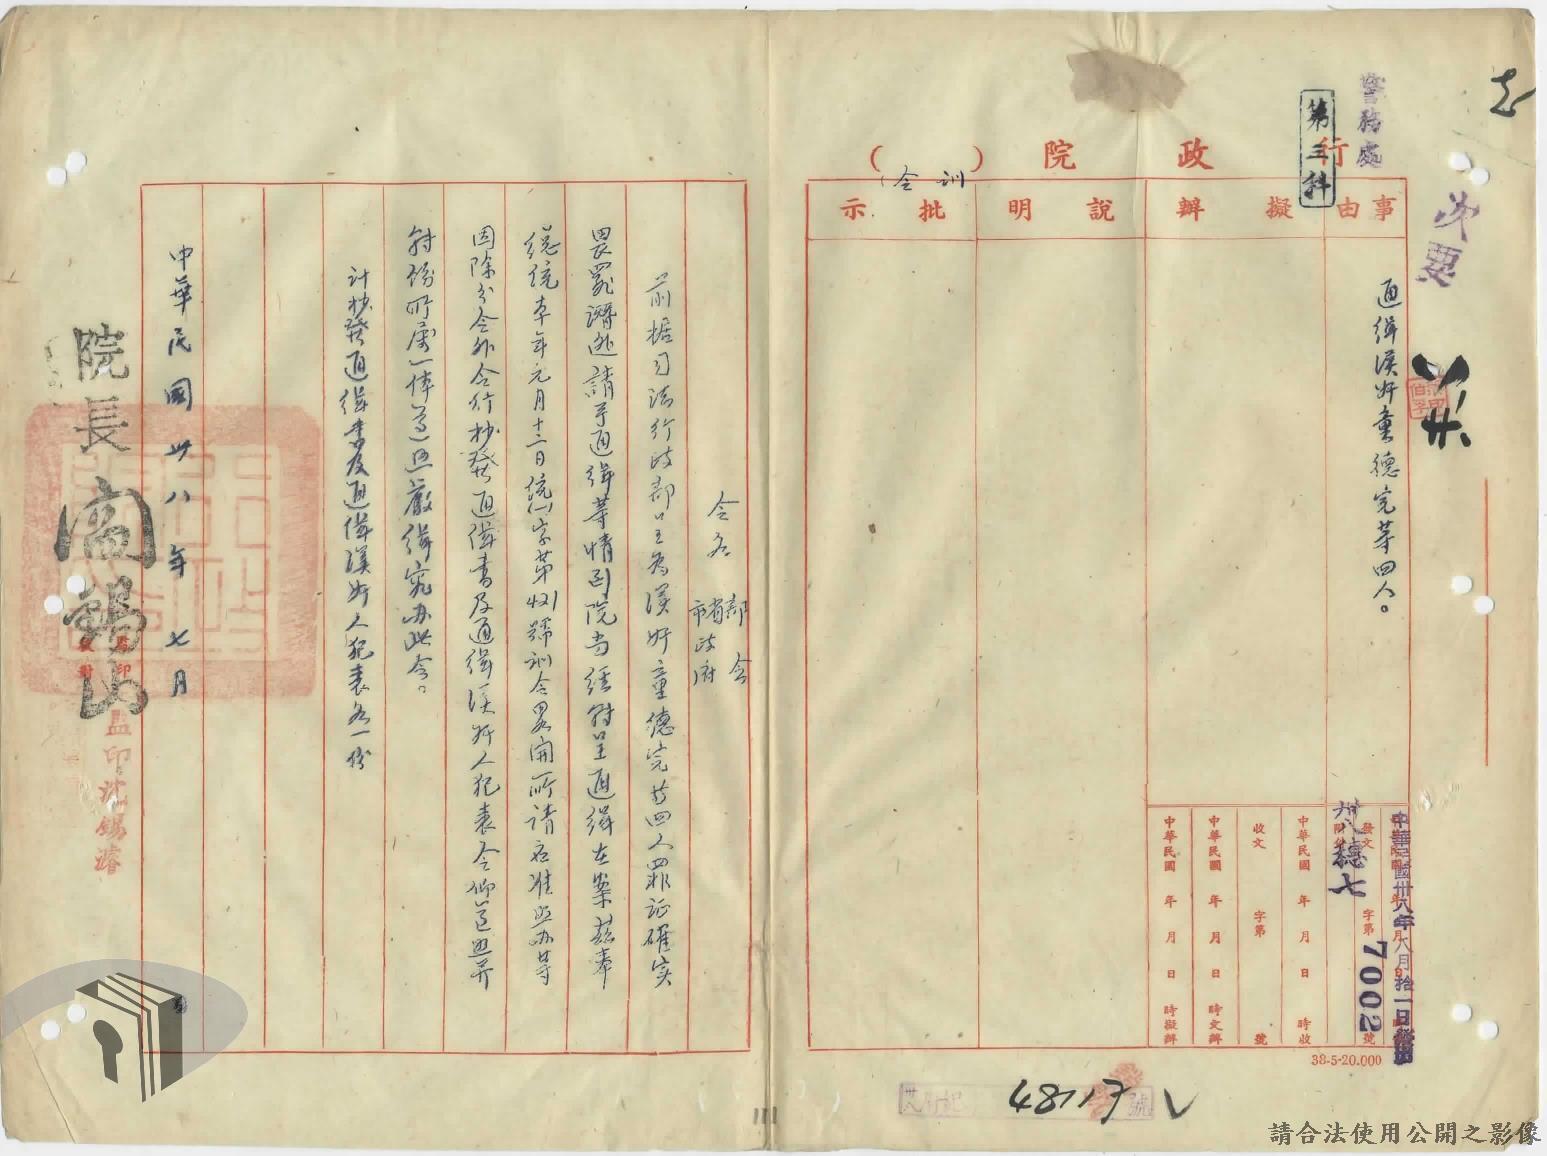 警務處
第三科
行政院(訓令)
事由
擬辦
說明
批示
通缉漢奸童德完等四人。
次要
中華民國卅八年八月拾一日
發文
卅八穗七
字第7002號
中華民國 年 月 日 時收
收文 字第 號
中華民國 年 月 日 時交辦
中華民國 年 月 日 時擬辦
38-5-20.000
48117
號
令各
部會
省市政府
前据司法行政部呈為漢奸童德完等四人罪证確实
畏罪潛逃請予通缉等情到院当经转呈通缉在案兹奉
總統本年元月十二日統
字第
號训令畧開所请应准照办等
因除分令外合行抄發通缉書及通缉漢奸人犯表令仰遵照并
转饬所属一体遵照嚴缉究办此令。
计抄發通缉書及通缉漢奸人犯表各一份
中華民國卅八年七月 日
院長閻錫山
監印沈錫濬
請合法使用公開之影像